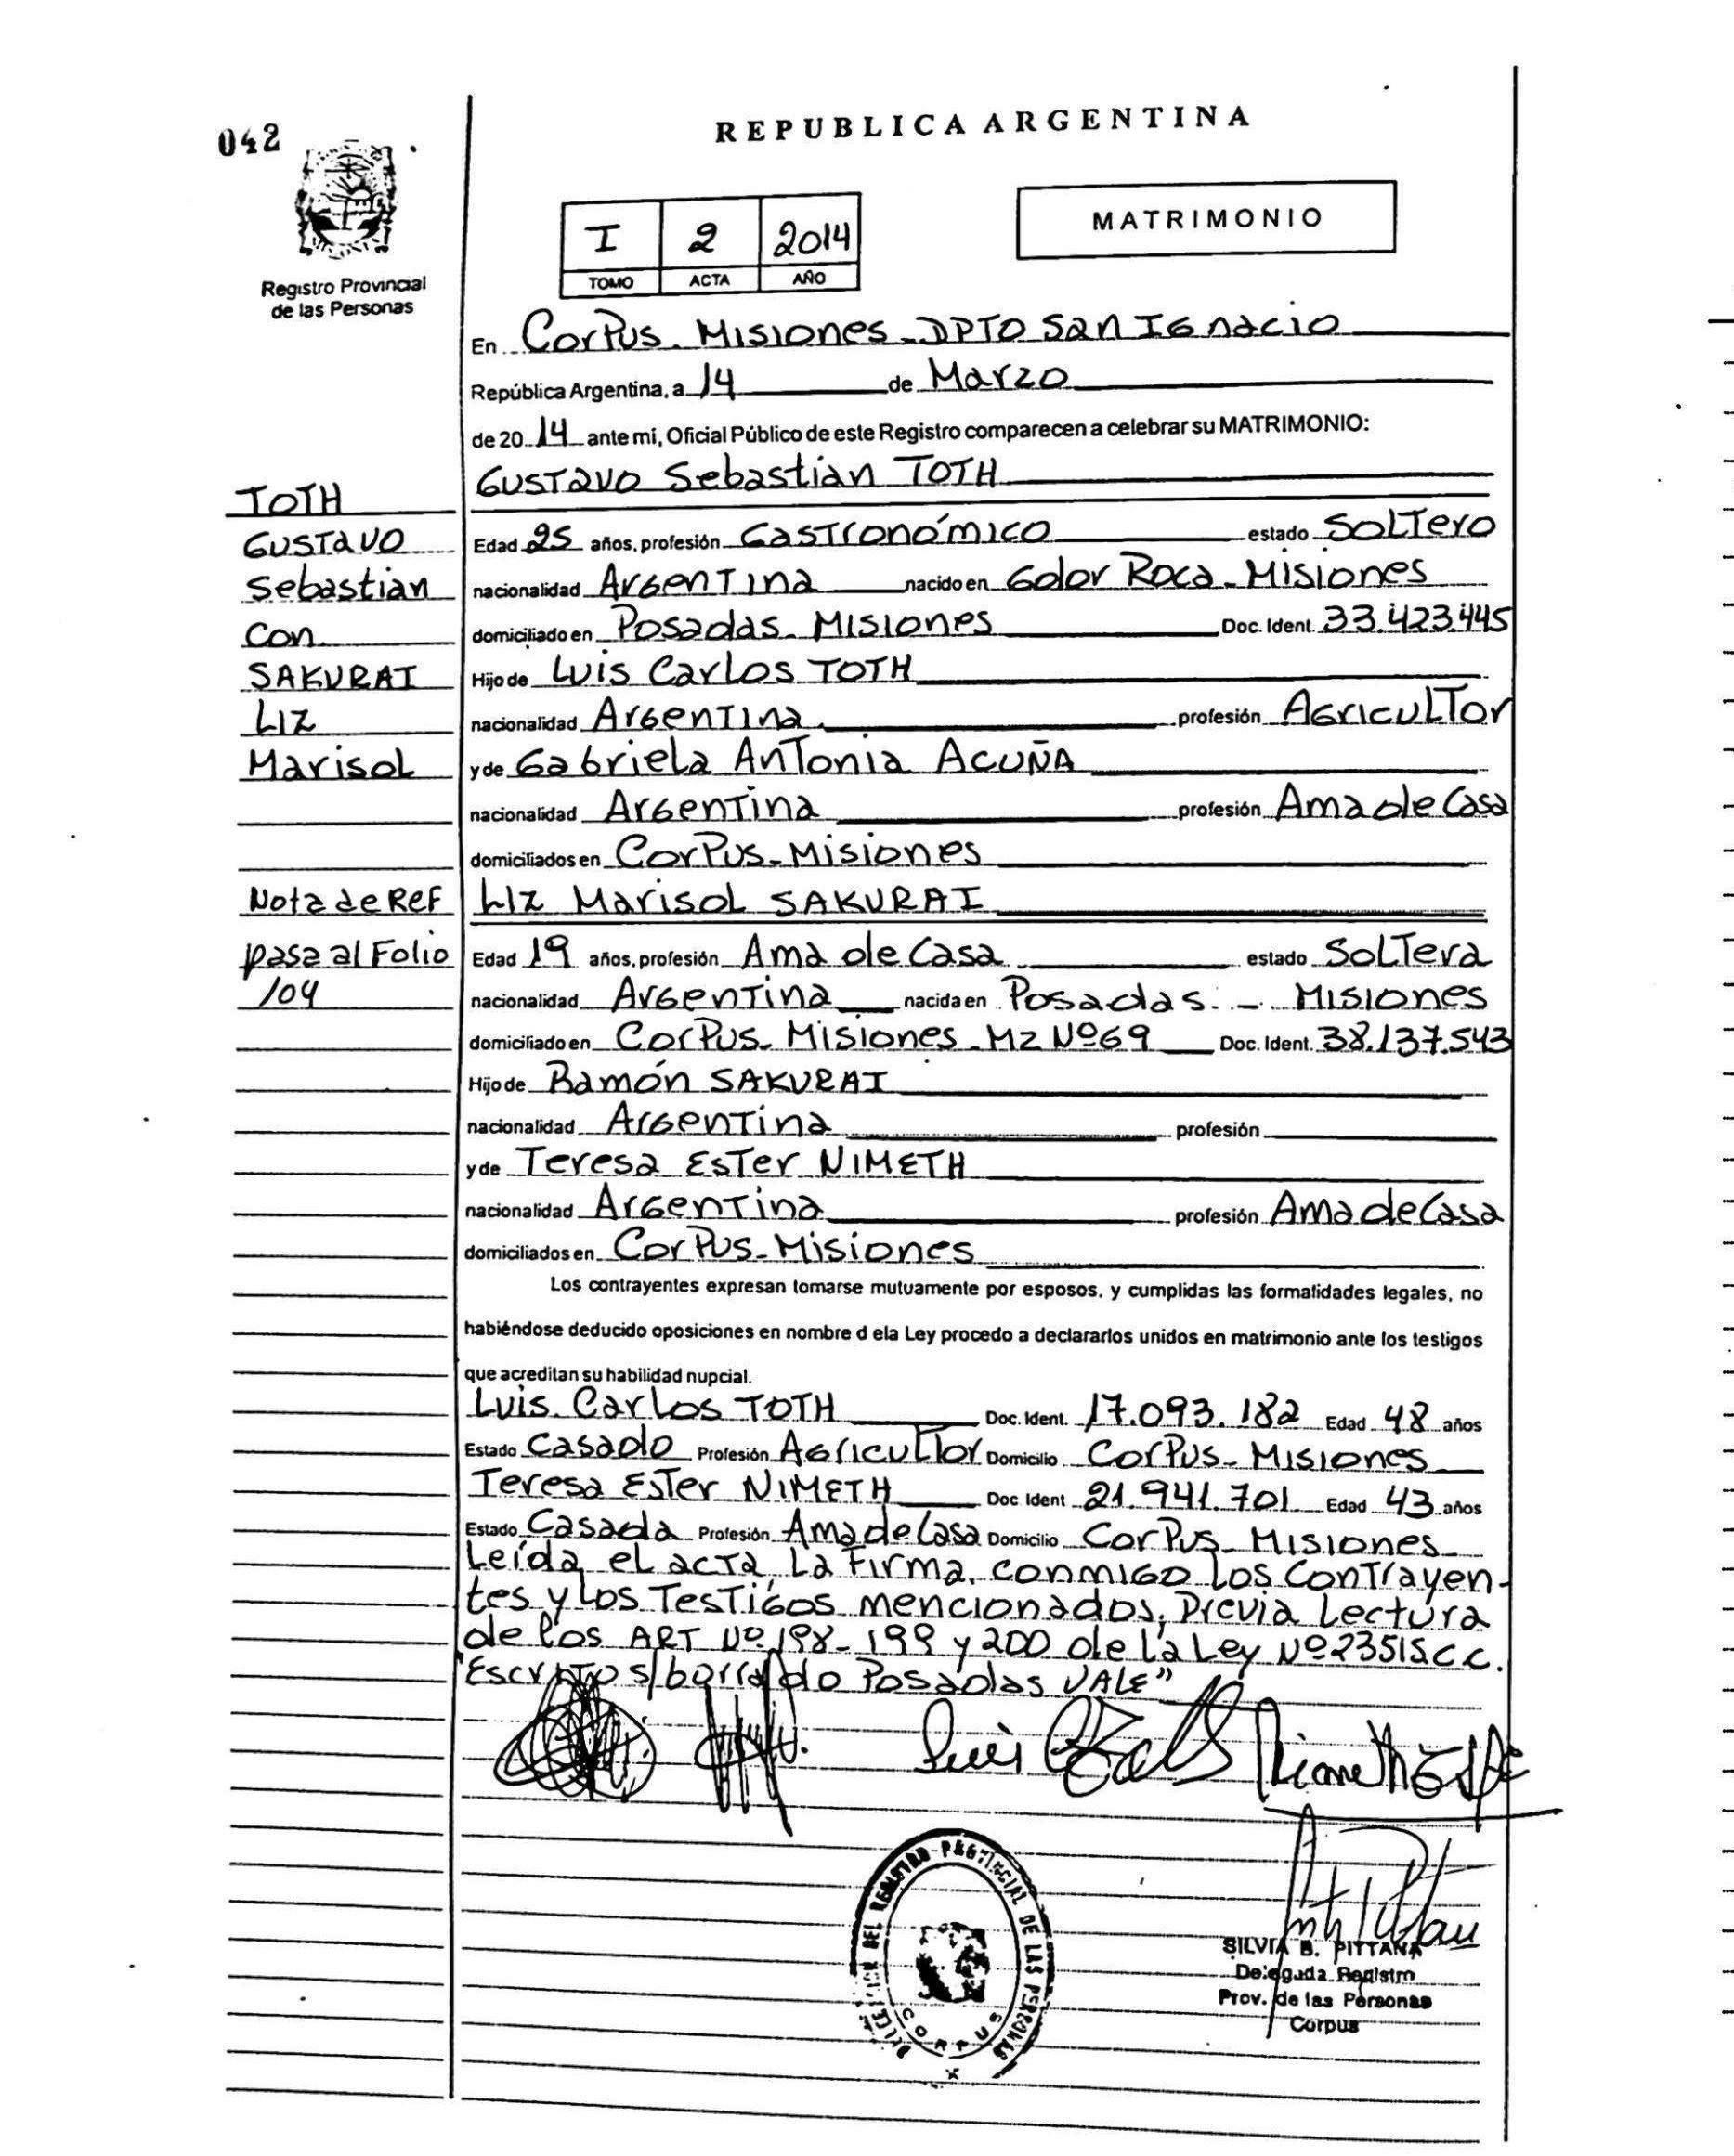 042
REPUBLICA ARGENTINA
Registro Provincial
de las Personas
I 2 2014
TOMO ACTA AÑO
MATRIMONIO
En Corpus. Misiones - DPTO San Ignacio
República Argentina, a 14 de Marzo
de 20 14 ante mí, Oficial Público de este Registro comparecen a celebrar su MATRIMONIO:
Gustavo Sebastian TOTH
Edad 25 años, profesión Gastronómico estado Soltero
nacionalidad Argentina nacido en Gdor Roca - Misiones
domiciliado en Posadas - Misiones Doc. Ident. 33.423.445
Hijo de Luis Carlos TOTH
nacionalidad Argentina profesión Agricultor
y de Gabriela Antonia ACUÑA
nacionalidad Argentina profesión Ama de Casa
domiciliados en Corpus - Misiones
Liz Marisol SAKURAI
Edad 19 años, profesión Ama de Casa estado Soltera
nacionalidad Argentina nacida en Posadas. - Misiones
domiciliado en Corpus - Misiones - Mz Nº69 Doc. Ident. 38.137.543
Hijo de Ramón SAKURAI
nacionalidad Argentina profesión
y de Teresa Ester NIMETH
nacionalidad Argentina profesión Ama de Casa
domiciliados en Corpus - Misiones
Los contrayentes expresan tomarse mutuamente por esposos, y cumplidas las formalidades legales, no
habiéndose deducido oposiciones en nombre d ela Ley procedo a declararlos unidos en matrimonio ante los testigos
que acreditan su habilidad nupcial.
Luis Carlos TOTH Doc. Ident. 17.093.182 Edad 48 años
Estado Casado Profesión Agricultor Domicilio Corpus - Misiones
Teresa Ester NIMETH Doc Ident 21.941.701 Edad 43 años
Estado Casada Profesión Ama de Casa Domicilio Corpus - Misiones
Leída el acta, La Firma, conmigo los Contrayen-
tes y los Testigos mencionados, Previa Lectura
de los ART Nº 198 - 199 y 200 de la Ley Nº 23515 C.C.
"Escrito s/borrado Posadas VALE"
TOTH
Gustavo
Sebastian
con
SAKURAI
Liz
Marisol
Nota de Ref
pasa al Folio
104
DEL REGISTRO PROVINCIAL DE LAS PERSONAS
CORPUS
SILVIA B. PITTANA
Delegada Registro
Prov. de las Personas
Corpus